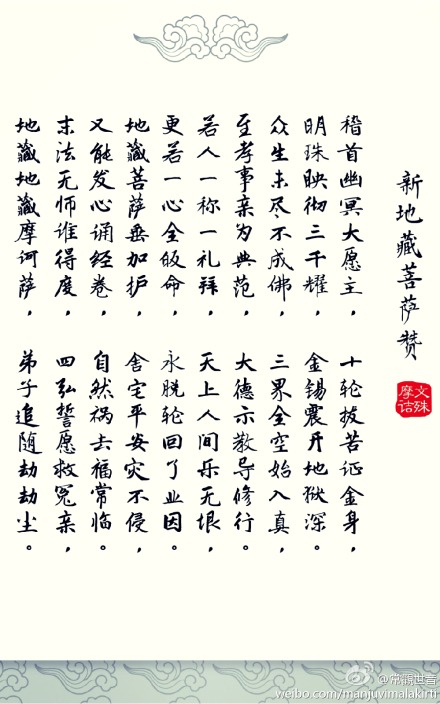 新地藏菩萨赞
文殊
摩诘
稽首幽冥大愿主，十轮拔苦证金身，
明珠映彻三千耀，金锡震开地狱深。
众生未尽不成佛，三界全空始入真，
至孝事亲为典范，大德示教导修行。
若人一称一礼拜，天上人间乐无垠，
更若一心全皈命，永脱轮回了业因。
地藏菩萨垂加护，舍宅平安灾不侵，
又能发心诵经卷，自然祸去福常临。
末法无师谁得度，四弘誓愿救冤亲，
地藏地藏摩诃萨，弟子追随劫劫尘。
weibo.com/manjuvimalakirti